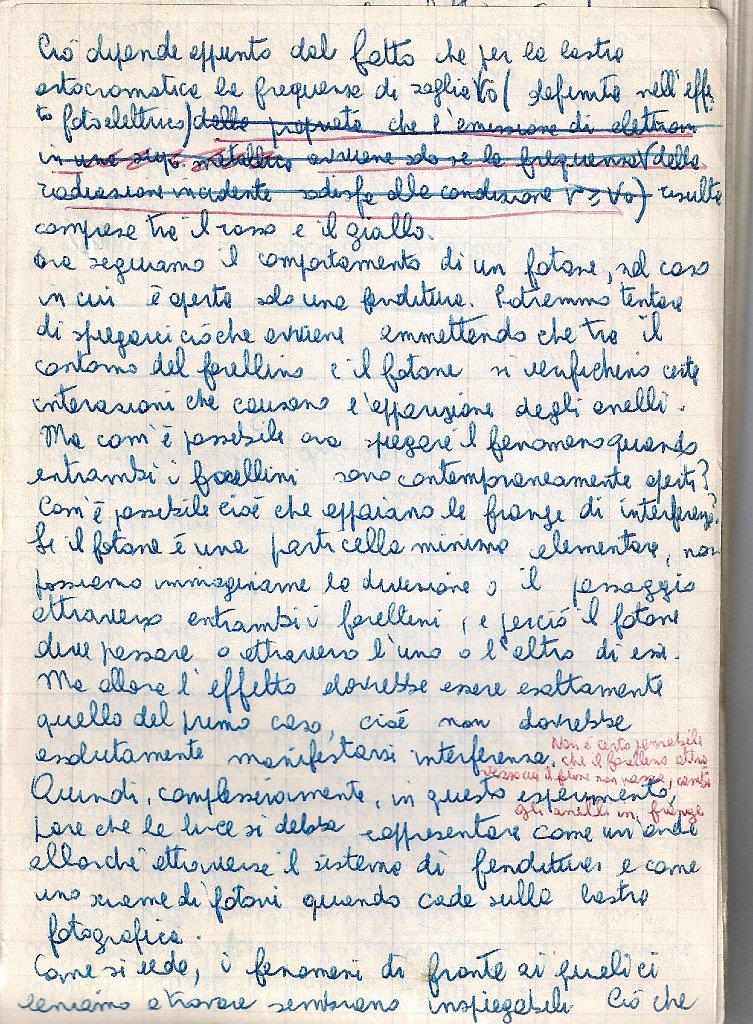 Ciò dipende appunto dal fatto che per la lastra
ortocromatica la frequenza di soglia ν0 ( definita nell'effe-
tto fotoelettrico) dalla proprietà che l'emissione di elettroni
in una sup. metallica avviene solo se la frequenza ν della
radiazione incidente sodisfa alla condizione ν ≥ ν0) risulta
compresa tra il rosso e il giallo.
Ora seguiamo il comportamento di un fotone, nel caso
in cui è aperta solo una fenditura. Potremmo tentare
di spiegarci ciò che avviene ammettendo che tra il
contorno del forellino e il fotone si verifichino certe
interazioni che causano l'apparizione degli anelli.
Ma com'è possibile ora spiegare il fenomeno quando
entrambi i forellini sono contemporaneamente aperti?
Com'è possibile cioè che appaiano le frange di interferenza?
Se il fotone è una particella minima elementare, non
possiamo immaginarne la divisione o il passaggio
attraverso entrambi i forellini, e perciò il fotone
deve passare o attraverso l'uno o l'altro di essi.
Ma allora l'effetto dovrebbe essere esattamente
quello del primo caso, cioè non dovrebbe
assolutamente manifestarsi interferenza.
Non è certo pensabile
che il forellino attra
verso cui il fotone non passa, cambi
gli anelli in frange
Quindi, complessivamente, in questo esperimento,
pare che la luce si debba rappresentare come un'onda
allorché attraversa il sistema di fenditure e come
uno sciame di fotoni quando cade sulla lastra
fotografica.
Come si vede, i fenomeni di fronte ai quali ci
veniamo a trovare sembrano inspiegabili. Ciò che